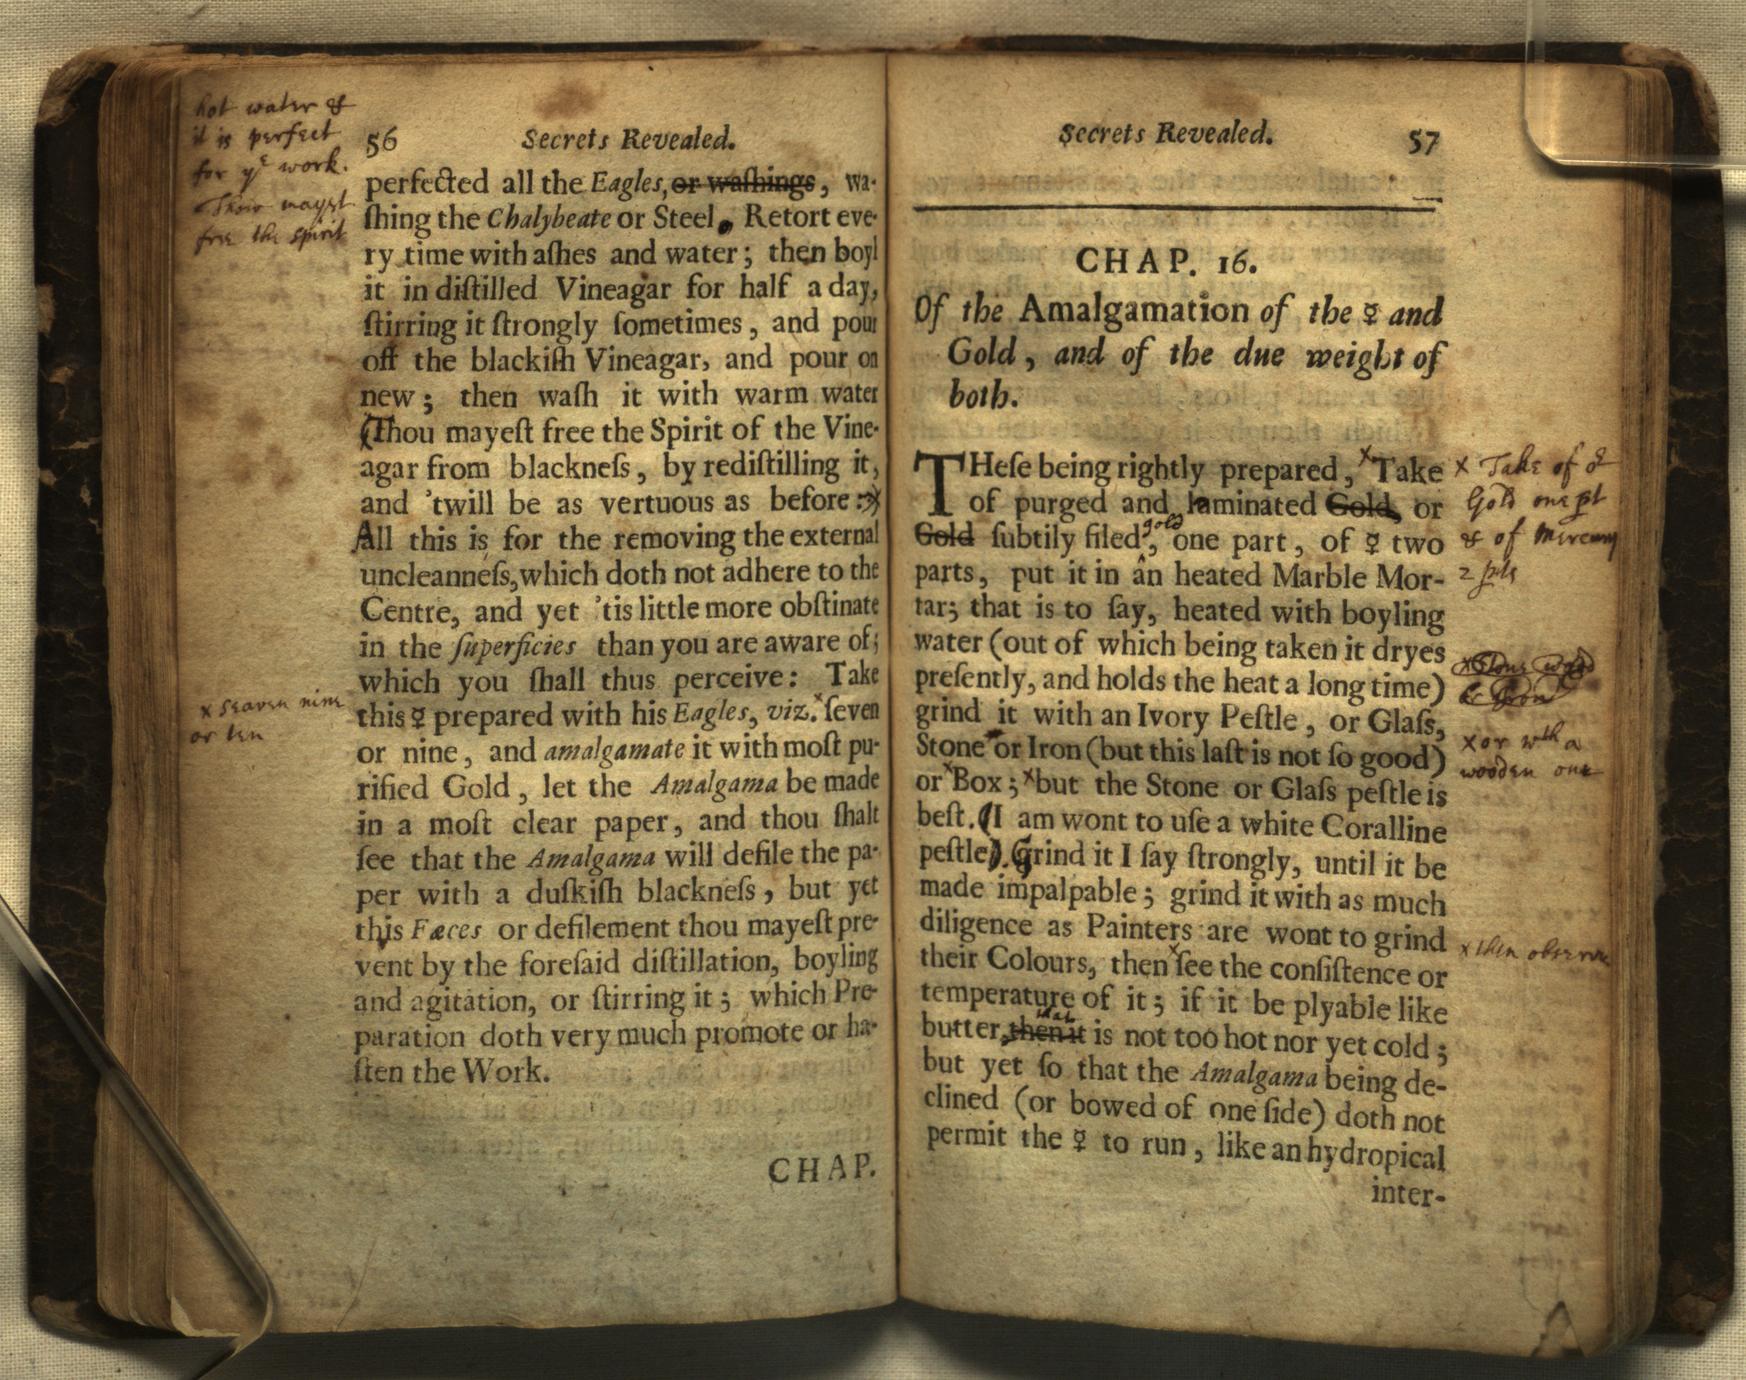 hot water &
it is perfect
for yᵉ work.
Thou mayst
free the spirit
56 Secrets Revealed.
perfected all the Eagles, or waſhings, wa-
ſhing the Chalybeate or Steel, Retort eve-
ry time with aſhes and water; then boyl
it in diſtilled Vineagar for half a day,
ſtirring it ſtrongly ſometimes, and pour
off the blackiſh Vineagar, and pour on
new; then waſh it with warm water
(Thou mayeſt free the Spirit of the Vine-
agar from blackneſs, by rediſtilling it,
and 'twill be as vertuous as before:)
All this is for the removing the external
uncleanneſs, which doth not adhere to the
Centre, and yet 'tis little more obſtinate
in the ſuperficies than you are aware of;
which you ſhall thus perceive: Take
this ☿ prepared with his Eagles, viz. ˣſeven
or nine, and amalgamate it with moſt pu-
rified Gold, let the Amalgama be made
in a moſt clear paper, and thou ſhalt
ſee that the Amalgama will defile the pa-
per with a duſkiſh blackneſs, but yet
this Fæces or defilement thou mayeſt pre-
vent by the foreſaid diſtillation, boyling
and agitation, or ſtirring it; which Pre-
paration doth very much promote or ha-
ſten the Work.
CHAP.
x seaven nine
or ten
Secrets Revealed. 57
CHAP. 16.
Of the Amalgamation of the ☿ and
Gold, and of the due weight of
both.
THeſe being rightly prepared, ˣTake
of purged and laminated Gold, or
Gold ſubtily filed gold, one part, of ☿ two
parts, put it in an heated Marble Mor-
tar; that is to ſay, heated with boyling
water (out of which being taken it dryes
preſently, and holds the heat a long time)
grind it with an Ivory Peſtle, or Glaſs,
Stone or Iron (but this laſt is not ſo good)
or ˣBox; ˣbut the Stone or Glaſs peſtle is
beſt. (I am wont to uſe a white Coralline
peſtle). Grind it I ſay ſtrongly, until it be
made impalpable; grind it with as much
diligence as Painters are wont to grind
their Colours, then ˣſee the conſiſtence or
temperature of it; if it be plyable like
butter, then it that is not too hot nor yet cold;
but yet ſo that the Amalgama being de-
clined (or bowed of one ſide) doth not
permit the ☿ to run, like an hydropical
inter-
x Take of
Gold one pt
& of Mercury
2 pts
x or wth a
wooden one
x then observe